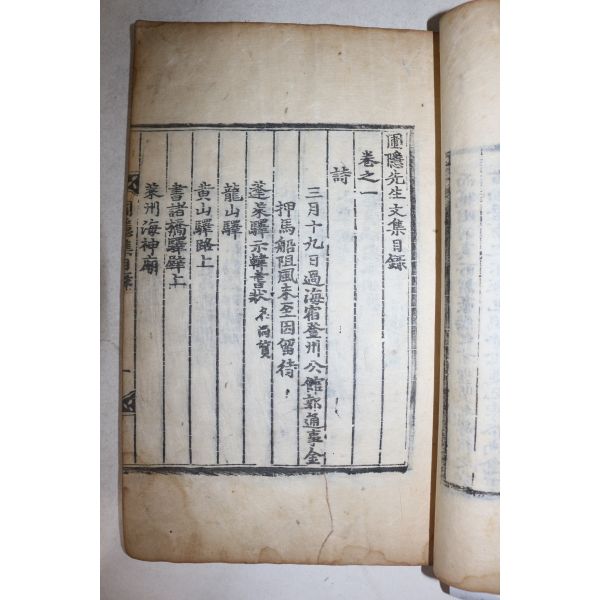 圃隱先生文集目録
卷之一
詩
三月十九日過海宿登州公館郭通事金
押馬船阻風未至因留待
蓬萊驛示韓書狀 名尚質
龍山驛
黄山驛路上
書諸橋驛壁上
萊州海神廟
圃隱集目録 一